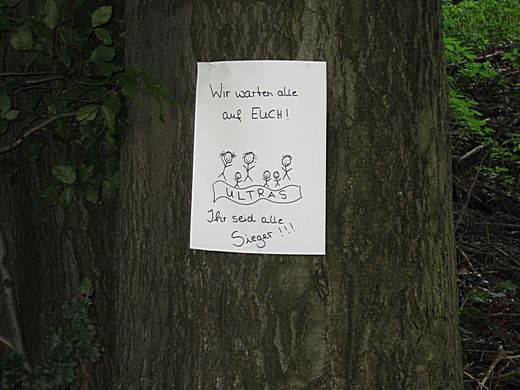 Wir warten alle
auf EUCH!
ULTRAS
Ihr seid alle
Sieger!!!